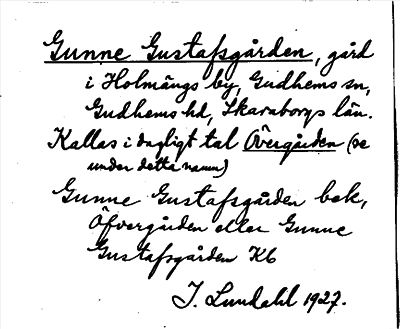 Gunne Gustafsgården, gård
i Holmängs by, Gudhems sn,
Gudhems hd, Skaraborgs län.
Kallas i dagligt tal Övergården (se
under detta namn)
Gunne Gustafsgården bek,
Öfvergården eller Gunne
Gustafsgården Kb
J. Lundahl 1927.